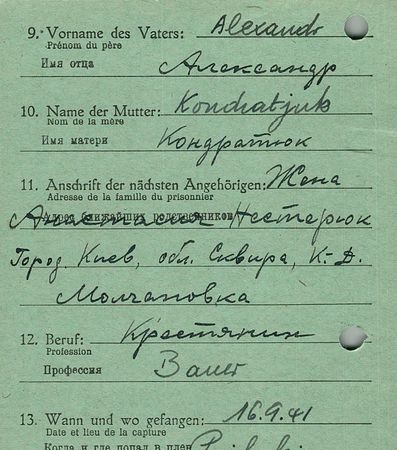 9. Vorname des Vaters: Alexandr
Prénom du père
Имя отца Александр
10. Name der Mutter: Kondratjuk
Nom de la mère
Имя матери Кондратюк
11. Anschrift der nächsten Angehörigen: Жена
Adresse de la famille du prisonnier
Адрес ближайших родственников
Анастасия Нестерюк
Город Киев, обл. Сквира, К.-Д.
Молчановка
12. Beruf: Крестянин
Profession
Профессия Bauer
13. Wann und wo gefangen: 16.9.41
Date et lieu de la capture
Когда и где попал в плен